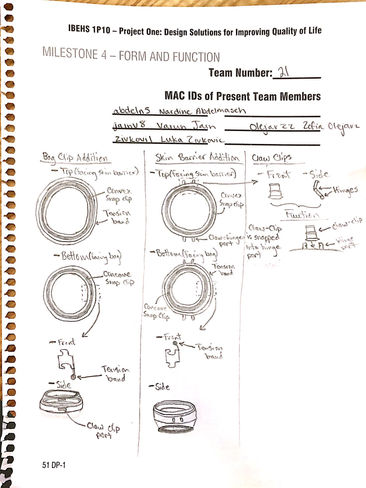 IBEHS 1P10 – Project One: Design Solutions for Improving Quality of Life
MILESTONE 4 – FORM AND FUNCTION
Team Number: 21
MAC IDs of Present Team Members
abdeln5 Nardine Abdelmaseh
jainv8 Varun Jain
Olejarzz Zofia Olejarz
Zivkovil Luka Zivkovic
Bag Clip Addition
- Top (facing skin barrier)
Convex
Snap clip
Tension
band
- Bottom (facing bag)
Concave
Snap clip
- Front
Tension
band
- Side
Claw clip
port
Skin Barrier Addition
- Top (facing skin barrier)
Convex
Snap clip
Claw-hinge
port
- Bottom (facing bag)
Tension
band
Concave
Snap Clip
- Front
Tension
band
- Side
Claw Clips
- Front
- Side
Hinges
Function
Claw-Clip
is snapped
into hinge
port
Claw-clip
Hinge
port
51 DP-1